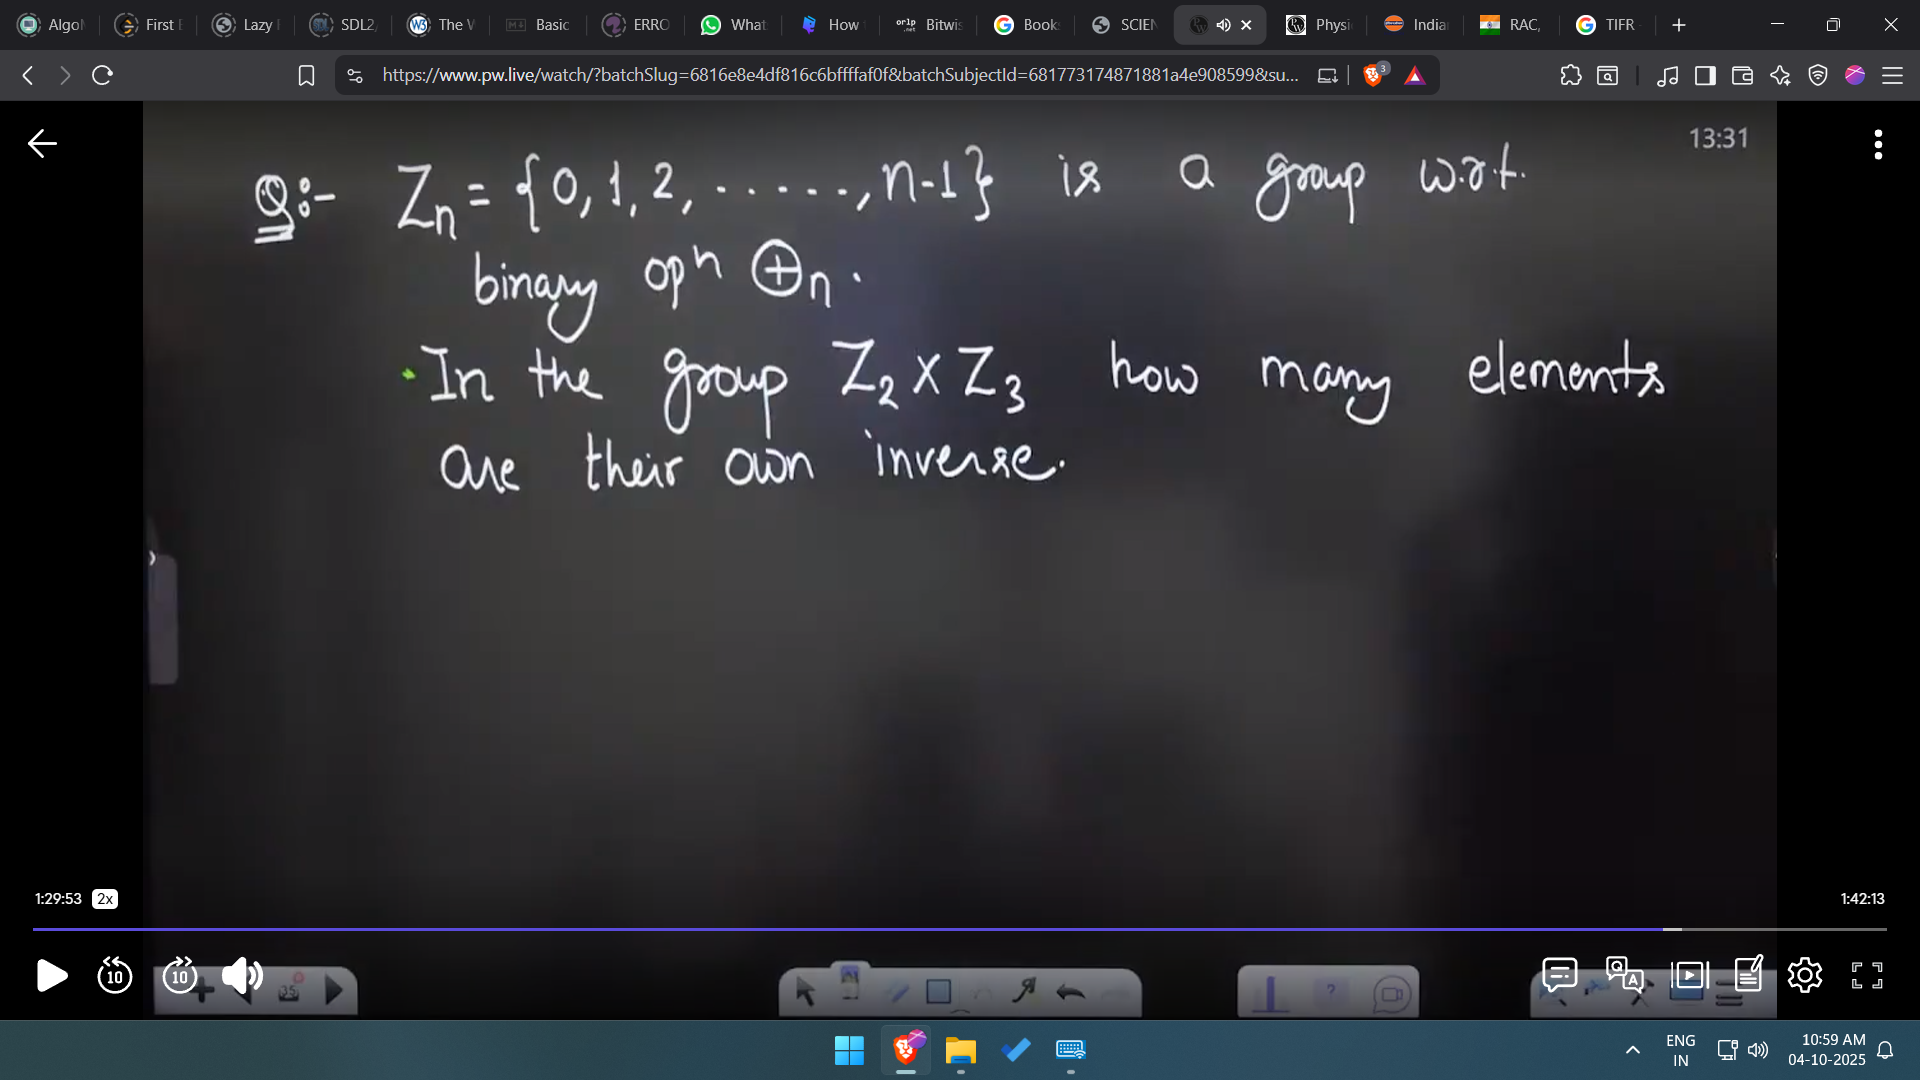 Algo
First
Lazy
SDL2,
The W
Basic
ERRO
What
How
orlp
.net
Bitwis
Book
SCIEN
Physi
India
RAC,
TIFR
https://www.pw.live/watch/?batchSlug=6816e8e4df816c6bffffaf0f&batchSubjectId=681773174871881a4e908599&su...
3
13:31
Q:- Zn = {0, 1, 2, ......, n-1} is a group w.r.t.
binary opn ⊕n.
• In the group Z2 x Z3 how many elements
are their own inverse.
1:29:53 2x
1:42:13
10
10
35
?
ENG
IN
10:59 AM
04-10-2025